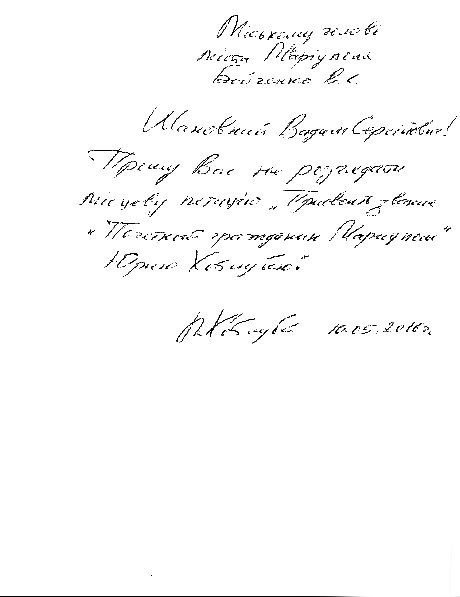 Міському голове
міста Маріуполя
Бойченко В.С.
Шановний Вадим Сергійович!
Прошу Вас не розглядати
місцеву петицію „Присвоить звание
“Почетный гражданин Мариуполя”
Юрию Хотлубею!
10.05.2016г.